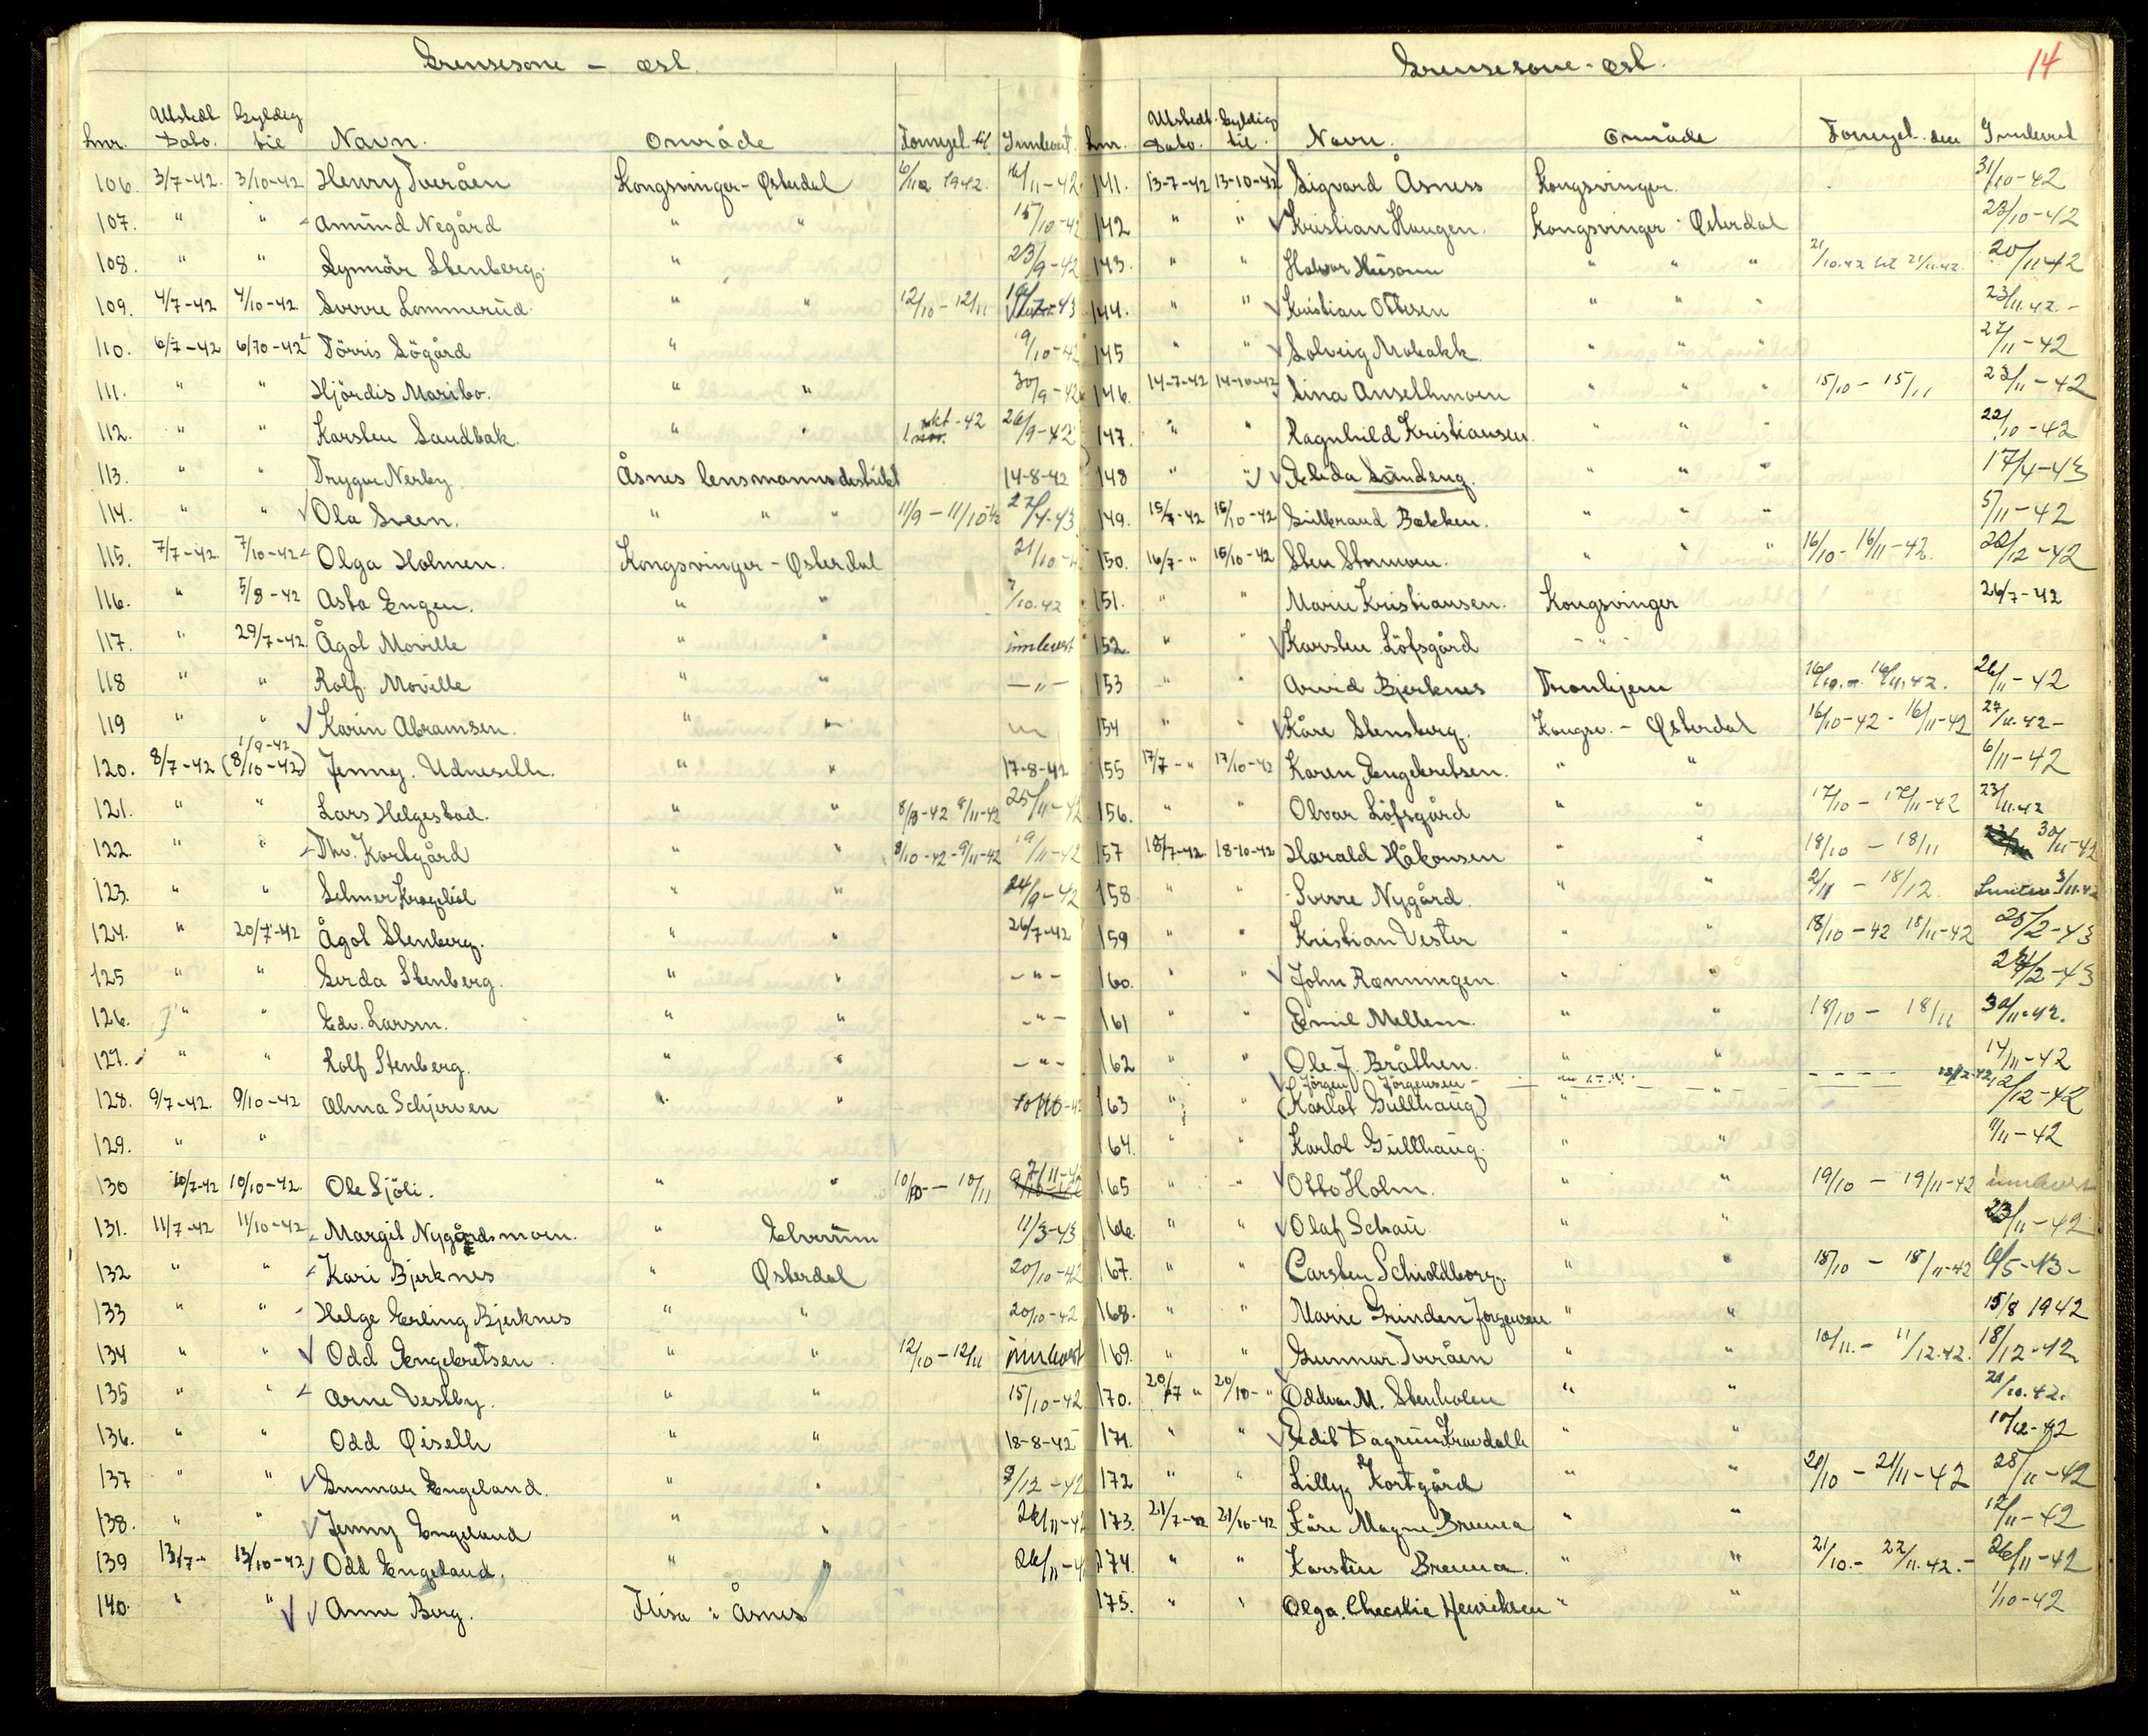 Grensesone - øst.
Lnr. Utstedt Dato. Gyldig til Navn. Område Fornyet til Innlevert
106. 3/7-42. 3/10-42 Henry Tveråen Kongsvinger - Østerdal 1942. 16/11-42
107. " " Amund Negård " " 15/10-42
108. " " Synnöv Stenberg. " 23/9-42
109. 4/7-42 4/10-42 Sverre Lommerud. " " 12/10-12/11
110. 6/7-42 6/10-42 Törris Sögård " 9/10-42
111. " " Hjördis Maribo. " " 30/9-42
112. " " Karsten Sandbak. " " 1 okt-42 26/9-42
113. " " Trygve Nerby Åsnes lensmannsdistrikt 14-8-42
114. " " Ola Sveen. " " " 11/9-11/10-42 27/4-43
115. 7/7-42 7/10-42 Olga Holmen. Kongsvinger - Østerdal 21/10-4
116. " 5/8-42 Asta Engen. " " 7/10.42
117. " 29/7-42 Ågot Moville " " innlevert
118 " " Rolf Moville " " -"-
119 " " Karin Abramsen. " "
1/9-42
120. 8/7-42 (8/10-42) Jenny. Udneseth. " " 17-8-42
121. " " Lars Helgestad. " " 8/10-42 8/11-42 25/11-42
122. " " Thv. Kortgård " " 9/10-42-9/11-42 19/11-42
123. " " Selmer Krogsböl " " 24/9-42
124. " 20/7-42 Ågot Stenberg. " " 26/7-42
125 " " Gerda Stenberg. " " -"-
126. " " Edv. Larsen. " " -"-
127. " " Rolf Stenberg. " " -"-
128. 9/7-42. 9/10-42 Alma Schjerven " " 10/10-42
129. " "
130 10/7-42 10/10-42. Ole Sjöli. " " 10/10 - 10/11
131. 11/7-42 11/10-42 Margit Nygårdsmoen. " Elverum 11/3-43
132 " " Kari Bjerknes " Østerdal 20/10-42
133 " " Helge Erling Bjerknes " " 20/10-42
134 " " Odd Engebretsen. " " 12/10-12/11 innlevert
135 " " Arne Vestby. " " 15/10-42
136. " " Odd Øiseth " " 18-8-42
137 " " Gunnar Engeland. " " 9/12-42
138. " " Jenny Engeland " 26/11-42
139 13/7- 13/10-42 Odd Engeland. " " 26/11-4
140. " " Anne Berg. Flisa i Åsnes
Grensesone - øst.
14
Lnr. Utstedt Dato. Gyldig til. Navn. Område Fornyet den Innlevert
141. 13-7-42 13-10-42 Sigvard Åsness Kongsvinger. 31/10-42
142 " " Kristian Haugen. Kongsvinger - Østerdal 28/10-42
143. " " Halvor Husom " " " 21/10.42 til 21/11.42. 20/11-42
144. " " Kristian Ottesen " " " 23/11.42.-
145 " " Solveig Mobakk. " " " 27/11-42
146. 14-7-42 14-10-42 Lina Anselhmoen " " " 15/10-15/11 23/11-42
147. " " Ragnhild Kristiansen. " " " 22/10-42
148 " " Elida Sandeng. " " " 17/4-43
149. 15/7-42 15/10-42 Gulbrand Bakken. " " " 5/11-42
150. 16/7-" 16/10-42 Sten Stormoen. " " " 16/10-16/11-42. 22/12-42
151. " " Marie Kristiansen. Kongsvinger 26/7-42
152. " " Karsten Löfsgård - " -
153 " " Arvid Bjerknes Tronhjem 16/10.-16/11.42. 26/11-42
154 " " Kåre Stensberg. Kongsv. - Østerdal 16/10-42-16/11-42 27/11-42-
155 17/7-" 17/10-42 Karen Engebretsen. " " 6/11-42
156. " " Olvar Löfsgård " " 17/10-17/11-42 23/11.42
157 18/7-42 18-10-42 Harald Håkonsen " " 18/10-18/11 30/11-42
158 " " Sverre Nygård. " " 2/11-18/12. 3/11-42
159 " " Kristian Vester " " 18/10-42 18/11-42 25/2-43
160. " " John Rønningen. " "
161 " " Emil Mellem. " " 18/10-18/11 30/11-42.
162 " " Ole. J. Bråthen. " " 14/11-42
Jörgen Jörgensen -
163 " " (Karlot Gullhaug) " " 2/12-42
164. " " Karlot Gullhaug. " " 11/11-42
165 " " Otto Holm. " " 19/10-19/11-42 innlevert
166. " " Olaf Schau " " 23/11-42
167. " " Carsten Schioldborg. " " 18/10-18/11-42 6/5-43-
168. " " Marie Grinden Jørgensen " " 15/8 1942
169. " " Gunnar Tveråen " " 10/11.-11/12.42. 18/12-42
170. 20/7 " 20/10-" Oddvar M. Stenholen " " 21/10.42.
171. " " Edit Dagrun Kravdalh " " 10/12-42
172 " " Lilly Kortgård " " 21/10-21/11-42 28/11-42
173. 21/7-42 21/10-42 Kåre Magne Brenna " 12/11-42
174. " " Karsten Brenna. " " 21/10.-22/11.42.- 26/11-42
175. " " Olga. Henriksen " " 1/10-42